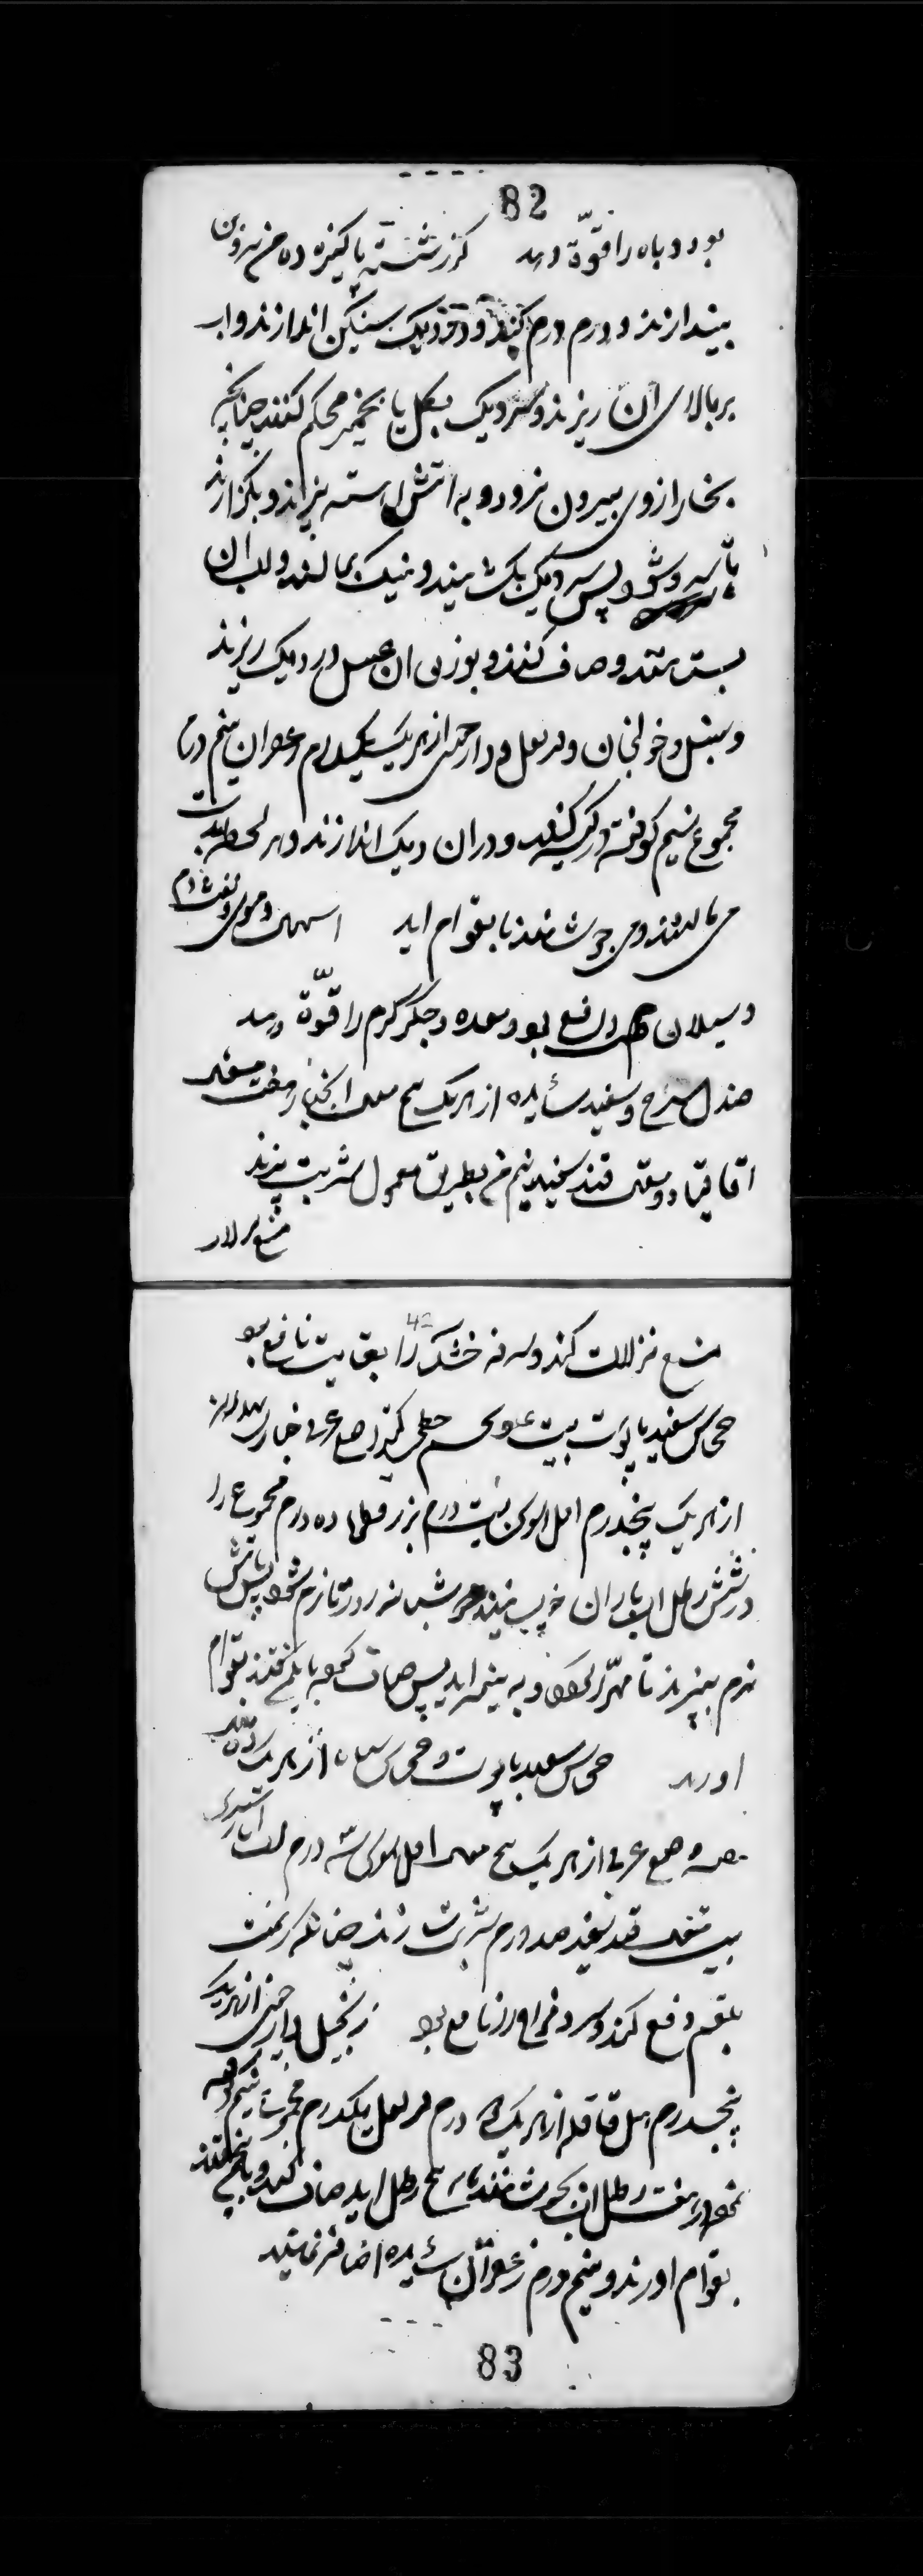 82
بود و باه را قوّة دهد گزر شسته پاکیزه ده من بیرون
بیندازند و درم درم کنند و در دیک سنکین اندازند و اب
بر بالای ان ریزند و سر دیک بکل یا بخمیر محکم کنند چنانچه
بخار از وی بیرون نرود و به اتش اهسته بپزند و بگزارند
تا سرد شود پس سر دیک بکشایند و نیک بمالند و اب ان
بستانند و صاف کنند و بوزن ان عسل در دیک ریزند
و سنبل و خولنجان و قرنفل و دارچینی از هر یک یکدرم زعفران نیم درم
مجموع نیم کوفته در کیسه کنند و در ان دیک اندازند و هر لحظه بدست
می مالند و می جوشانند تا بقوام اید اسهال دموی و نفث الدم
و سیلان را نافع بود و معده و جگر گرم را قوّة دهد
صندل سرخ و سفید سائیده از هر یک پنج مثقال انجبار هفت مثقال
اقاقیا دو مثقال قند سفید نیم من بطریق معمول شربت پزند
منع نزلات
42
منع نزلات کند و سرفه خشک را بغایت نافع بود
خشخاش سفید با پوست بیست عدد تخم خطمی کتیرا صمغ عربی خبازی
از هر یک پنجدرم اصل السوس بیست درم بزر قطونا ده درم مجموع را
در شش رطل اب باران خیسانند شبانه روز تا نرم شود پس باتش
نرم بپزند تا مهرّا شود و به نیمه اید پس صاف نموده با یکمن قند بقوام
اورند خشخاش سفید با پوست و خشخاش سیاه از هر یک ده مثقال
صمغ عربی از هر یک پنج مثقال اصل السوس سه درم اب انار شیرین
بیست مثقال قند سفید صد درم شربت سازند چنانکه گفت
بلغم دفع کند و سرد مزاج را نافع بود زنجبیل دارچینی از هر یک
پنجدرم هل قاقله از هر یک درم قرنفل یکدرم مجموع را نیم کوفته
نموده در هفت رطل اب بجوشانند تا به پنج رطل اید صاف کنند و با یکمن قند
بقوام اورند و نیم درم زعفران سائیده اضافه نمایند
83